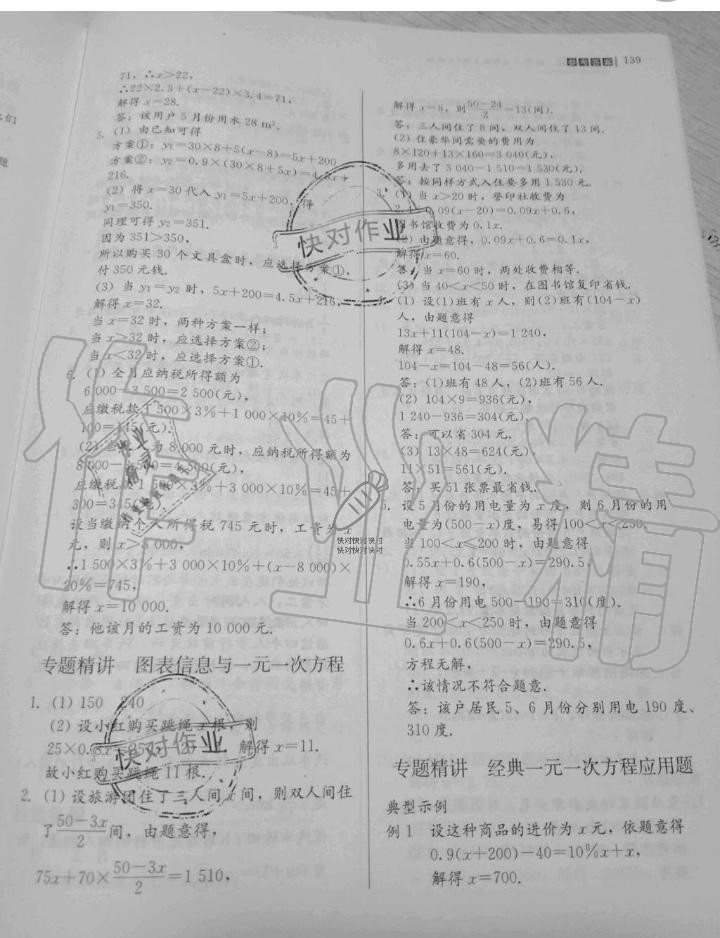 参考答案 139
71,∴x>22,
∴22×2.3+(x-22)×3.4=71,
解得x=28.
答:该用户5月份用水28 m³.
5. (1)由已知可得
方案①:y₁=30×8+5(x-8)=5x+200
方案②:y₂=0.9×(30×8+5x)=4.5x+
216.
(2)将x=30代入y₁=5x+200,得
y₁=350.
同理可得y₂=351.
因为351>350,
所以购买30个文具盒时,应选择方案①,
付350元钱.
(3)当y₁=y₂时,5x+200=4.5x+216,
解得x=32.
当x=32时,两种方案一样;
当x>32时,应选择方案②;
当x<32时,应选择方案①.
6. (1)全月应纳税所得额为
6 000-3 500=2 500(元),
应缴税款1 500×3%+1 000×10%=45+
100=145(元).
(2)当收入为8 000元时,应纳税所得额为
8 000-3 500=4 500(元),
应缴税款1 500×3%+3 000×10%=45+
300=345(元)
设当缴纳个人所得税745元时,工资为x
元,则x>8 000,
∴1 500×3%+3 000×10%+(x-8 000)×
20%=745,
解得x=10 000.
答:他该月的工资为10 000元.
专题精讲 图表信息与一元一次方程
1. (1)150 240
(2)设小红购买跳绳x根,则
25×0.8x 解得x=11.
故小红购买跳绳11根.
2. (1)设旅游团住了三人间x间,则双人间住
了(50-3x)/2间,由题意得,
75x+70×(50-3x)/2=1 510,
解得x=8,则(50-24)/2=13(间).
答:三人间住了8间,双人间住了13间.
(2)住豪华间需要的费用为
8×120+13×160=3 040(元),
多用去了3 040-1 510=1 530(元).
答:按同样方式入住要多用1 530元.
3. (1)当x>20时,誊印社收费为
2.4+0.09(x-20)=0.09x+0.6,
图书馆收费为0.1x.
(2)由题意得,0.09x+0.6=0.1x,
解得x=60.
答:当x=60时,两处收费相等.
(3)当40<x<50时,在图书馆复印省钱.
(1)设(1)班有x人,则(2)班有(104-x)
人,由题意得
13x+11(104-x)=1 240,
解得x=48.
104-x=104-48=56(人).
答:(1)班有48人,(2)班有56人.
(2)104×9=936(元),
1 240-936=304(元).
答:可以省304元.
(3)13×48=624(元),
11×51=561(元).
答:买51张票最省钱.
5. 设5月份的用电量为x度,则6月份的用
电量为(500-x)度,易得100<x<250.
当100<x<200时,由题意得
0.55x+0.6(500-x)=290.5,
解得x=190,
∴6月份用电500-190=310(度).
当200<x<250时,由题意得
0.6x+0.6(500-x)=290.5,
方程无解,
∴该情况不符合题意.
答:该户居民5、6月份分别用电190度、
310度.
专题精讲 经典一元一次方程应用题
典型示例
例1 设这种商品的进价为x元,依题意得
0.9(x+200)-40=10%x+x,
解得x=700.
快对作业
快对作业
作业精灵
作业精
快对快对快对
快对快对快对